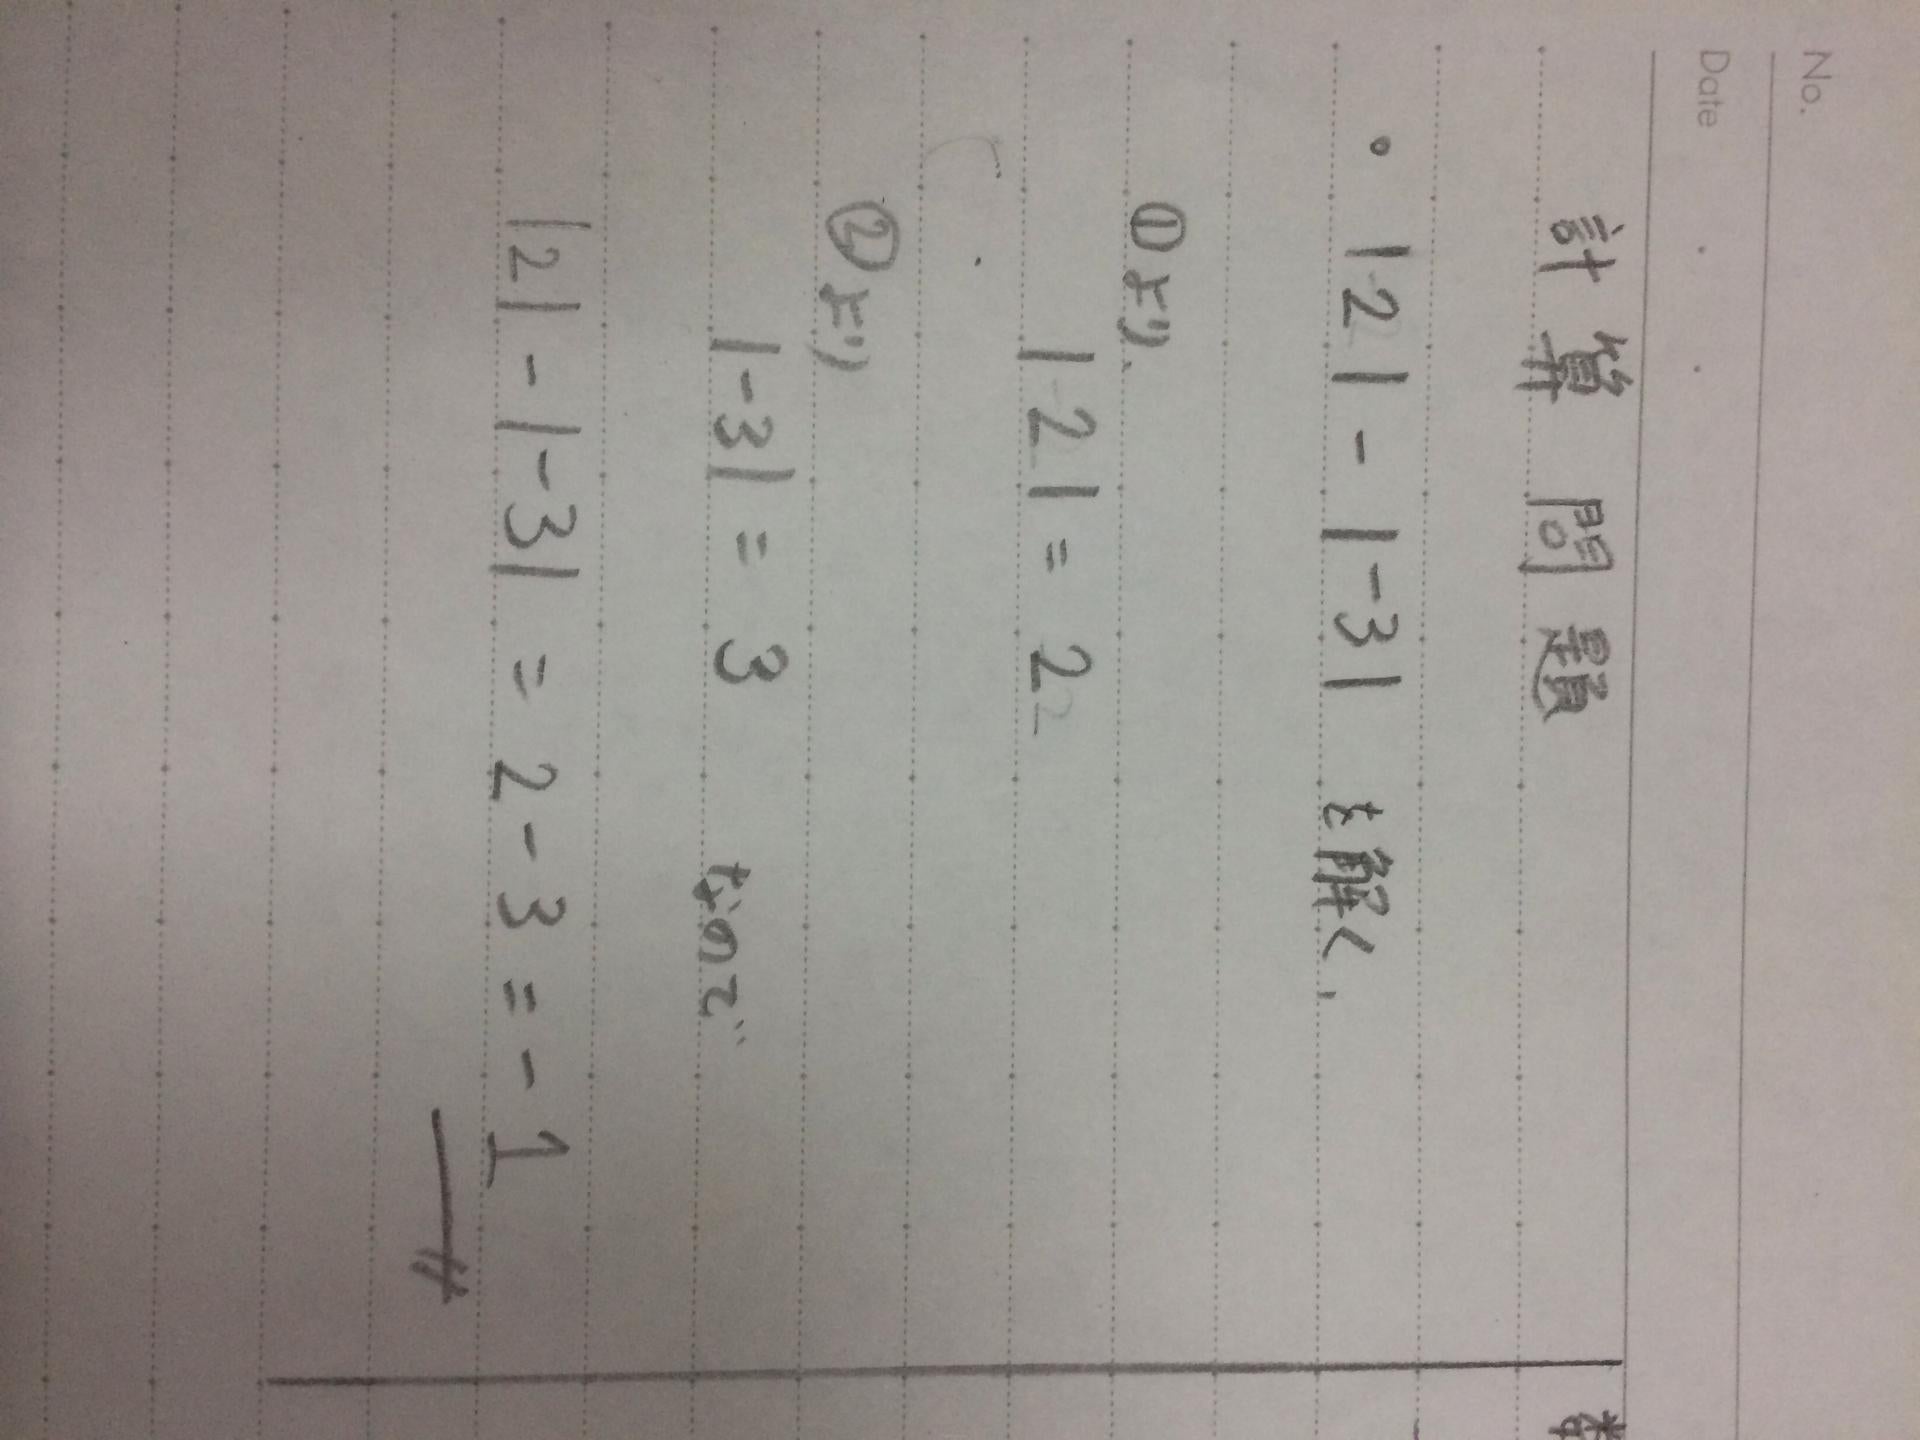 No.
Date
計算問題
・|2| - |-3| を解く.
①より.
|2| = 2
②より
|-3| = 3 なので
|2| - |-3| = 2 - 3 = -1